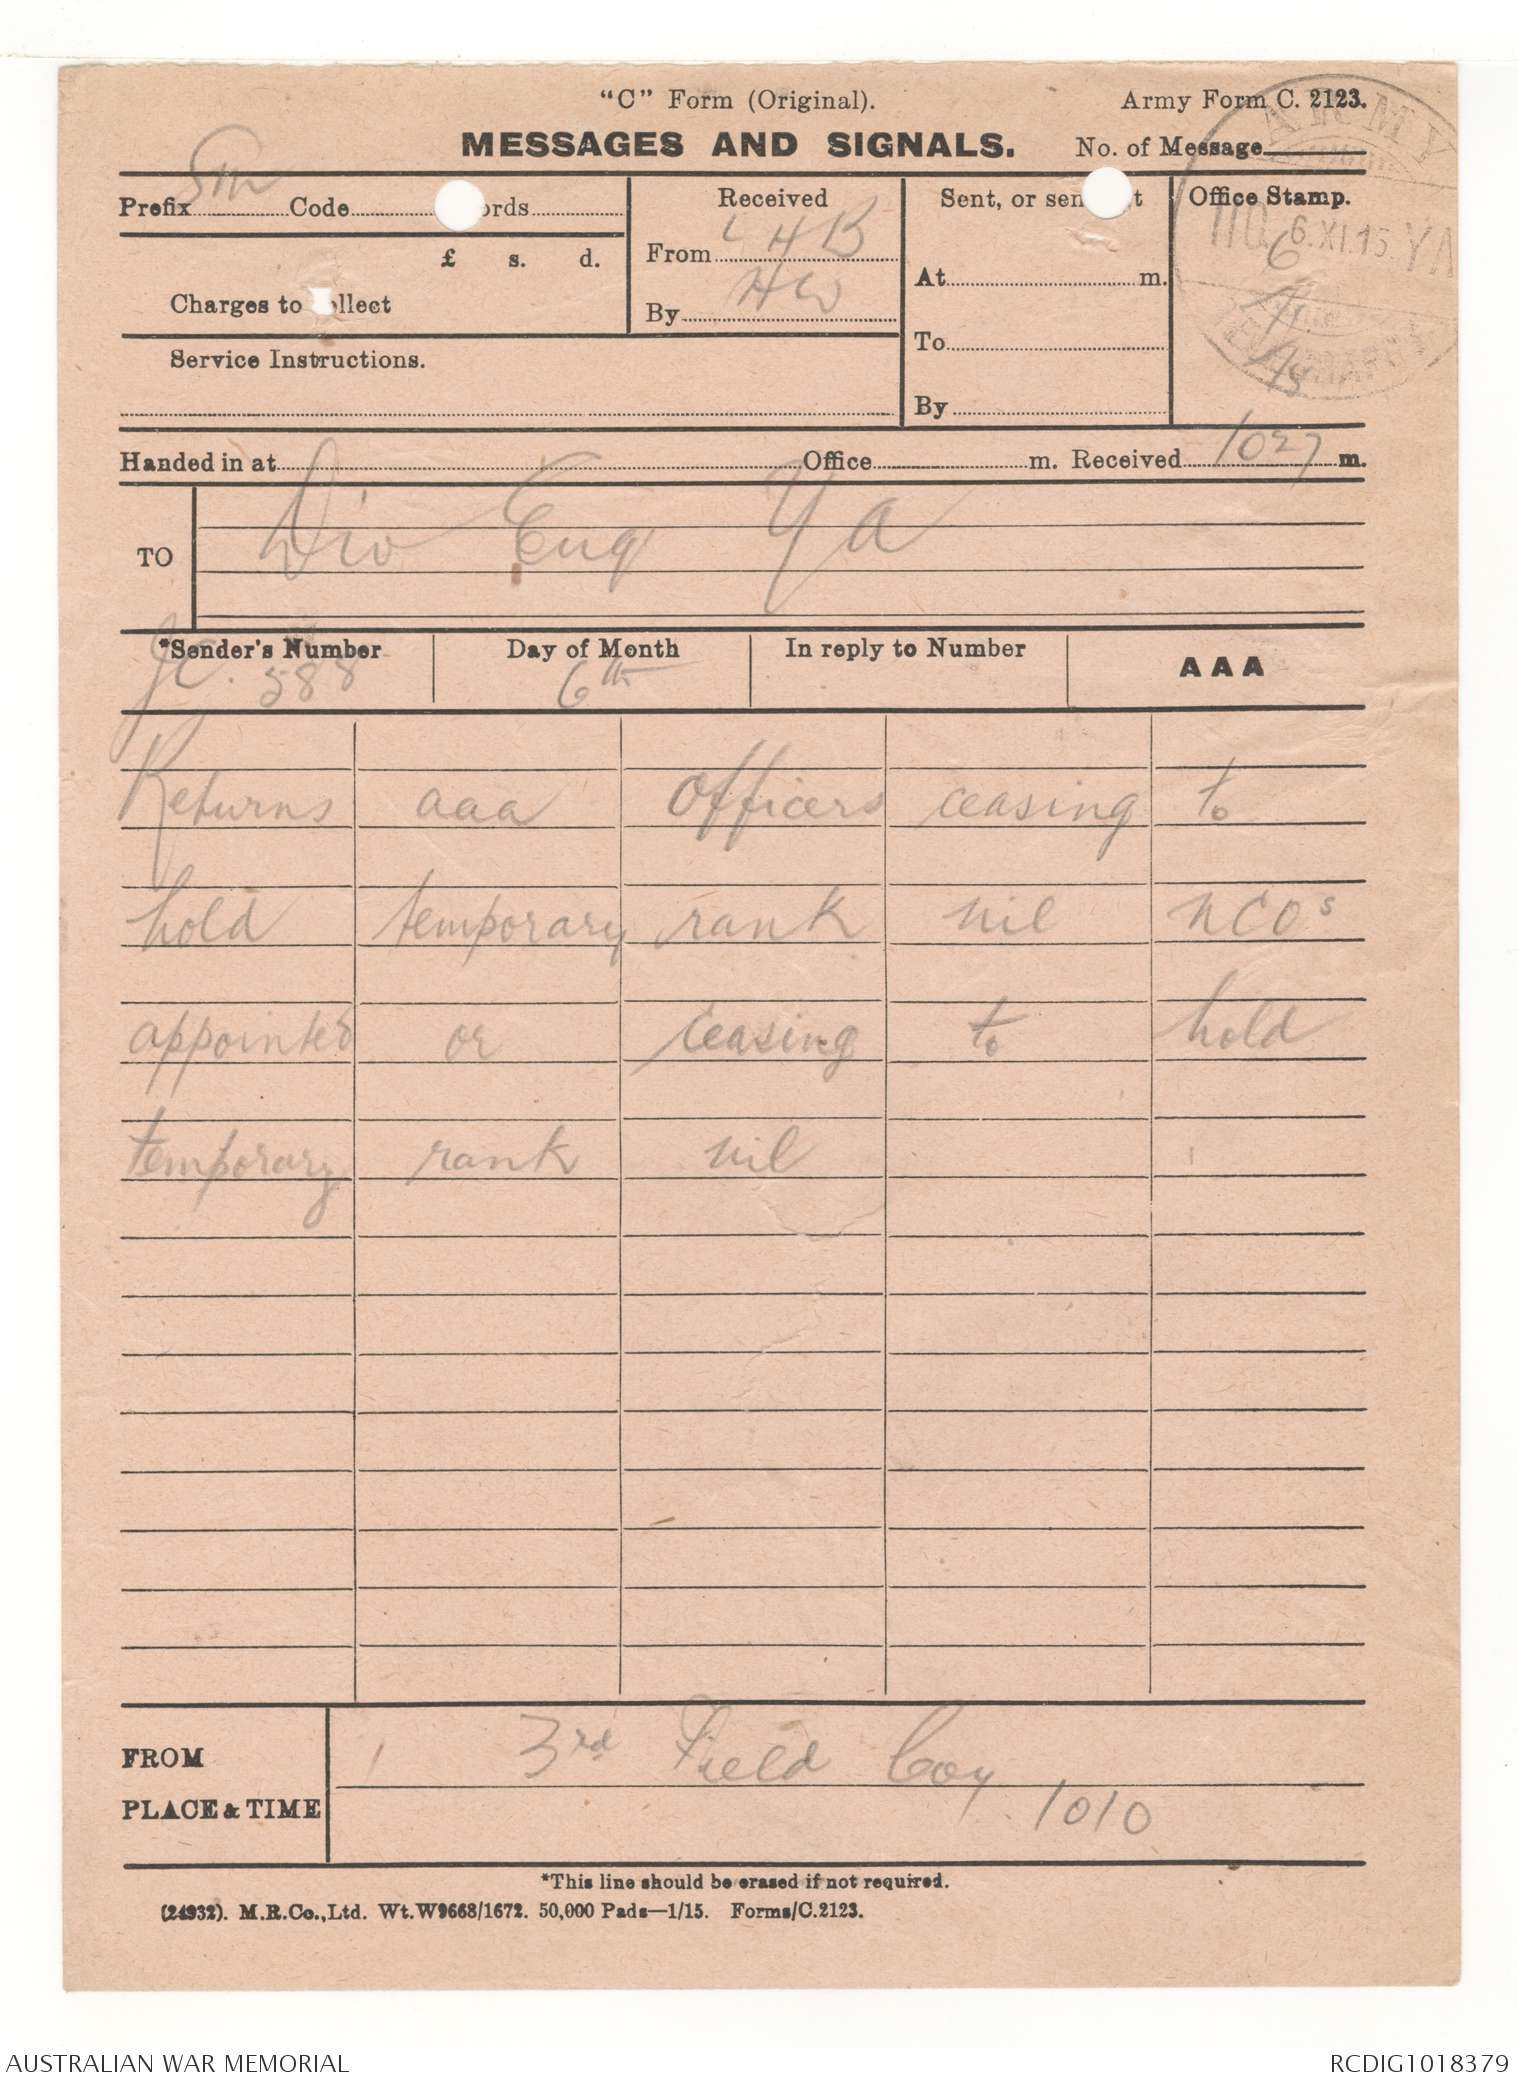 "C" Form (Original). Army Form C. 2123.
MESSAGES AND SIGNALS. No. of Message
Prefix Sm Code ords
£ s. d.
Charges to ollect
Service Instructions.
Received
From LHB
By HW
Sent, or sen t
At m.
To
By
Office Stamp.
ARMY
HQ 6.XI.15 YA
6
Handed in at Office m. Received 1027 m.
TO Div Eng Ya
*Sender's Number Day of Month In reply to Number AAA
JC. 588 6th
Returns aaa Officers ceasing to
hold temporary rank nil NCOs
appointed or ceasing to hold
temporary rank nil
FROM 3rd Field Coy
PLACE & TIME 1010
*This line should be erased if not required.
(24932). M.R.Co.,Ltd. Wt.W9668/1672. 50,000 Pads—1/15. Forms/C.2123.
AUSTRALIAN WAR MEMORIAL RCDIG1018379